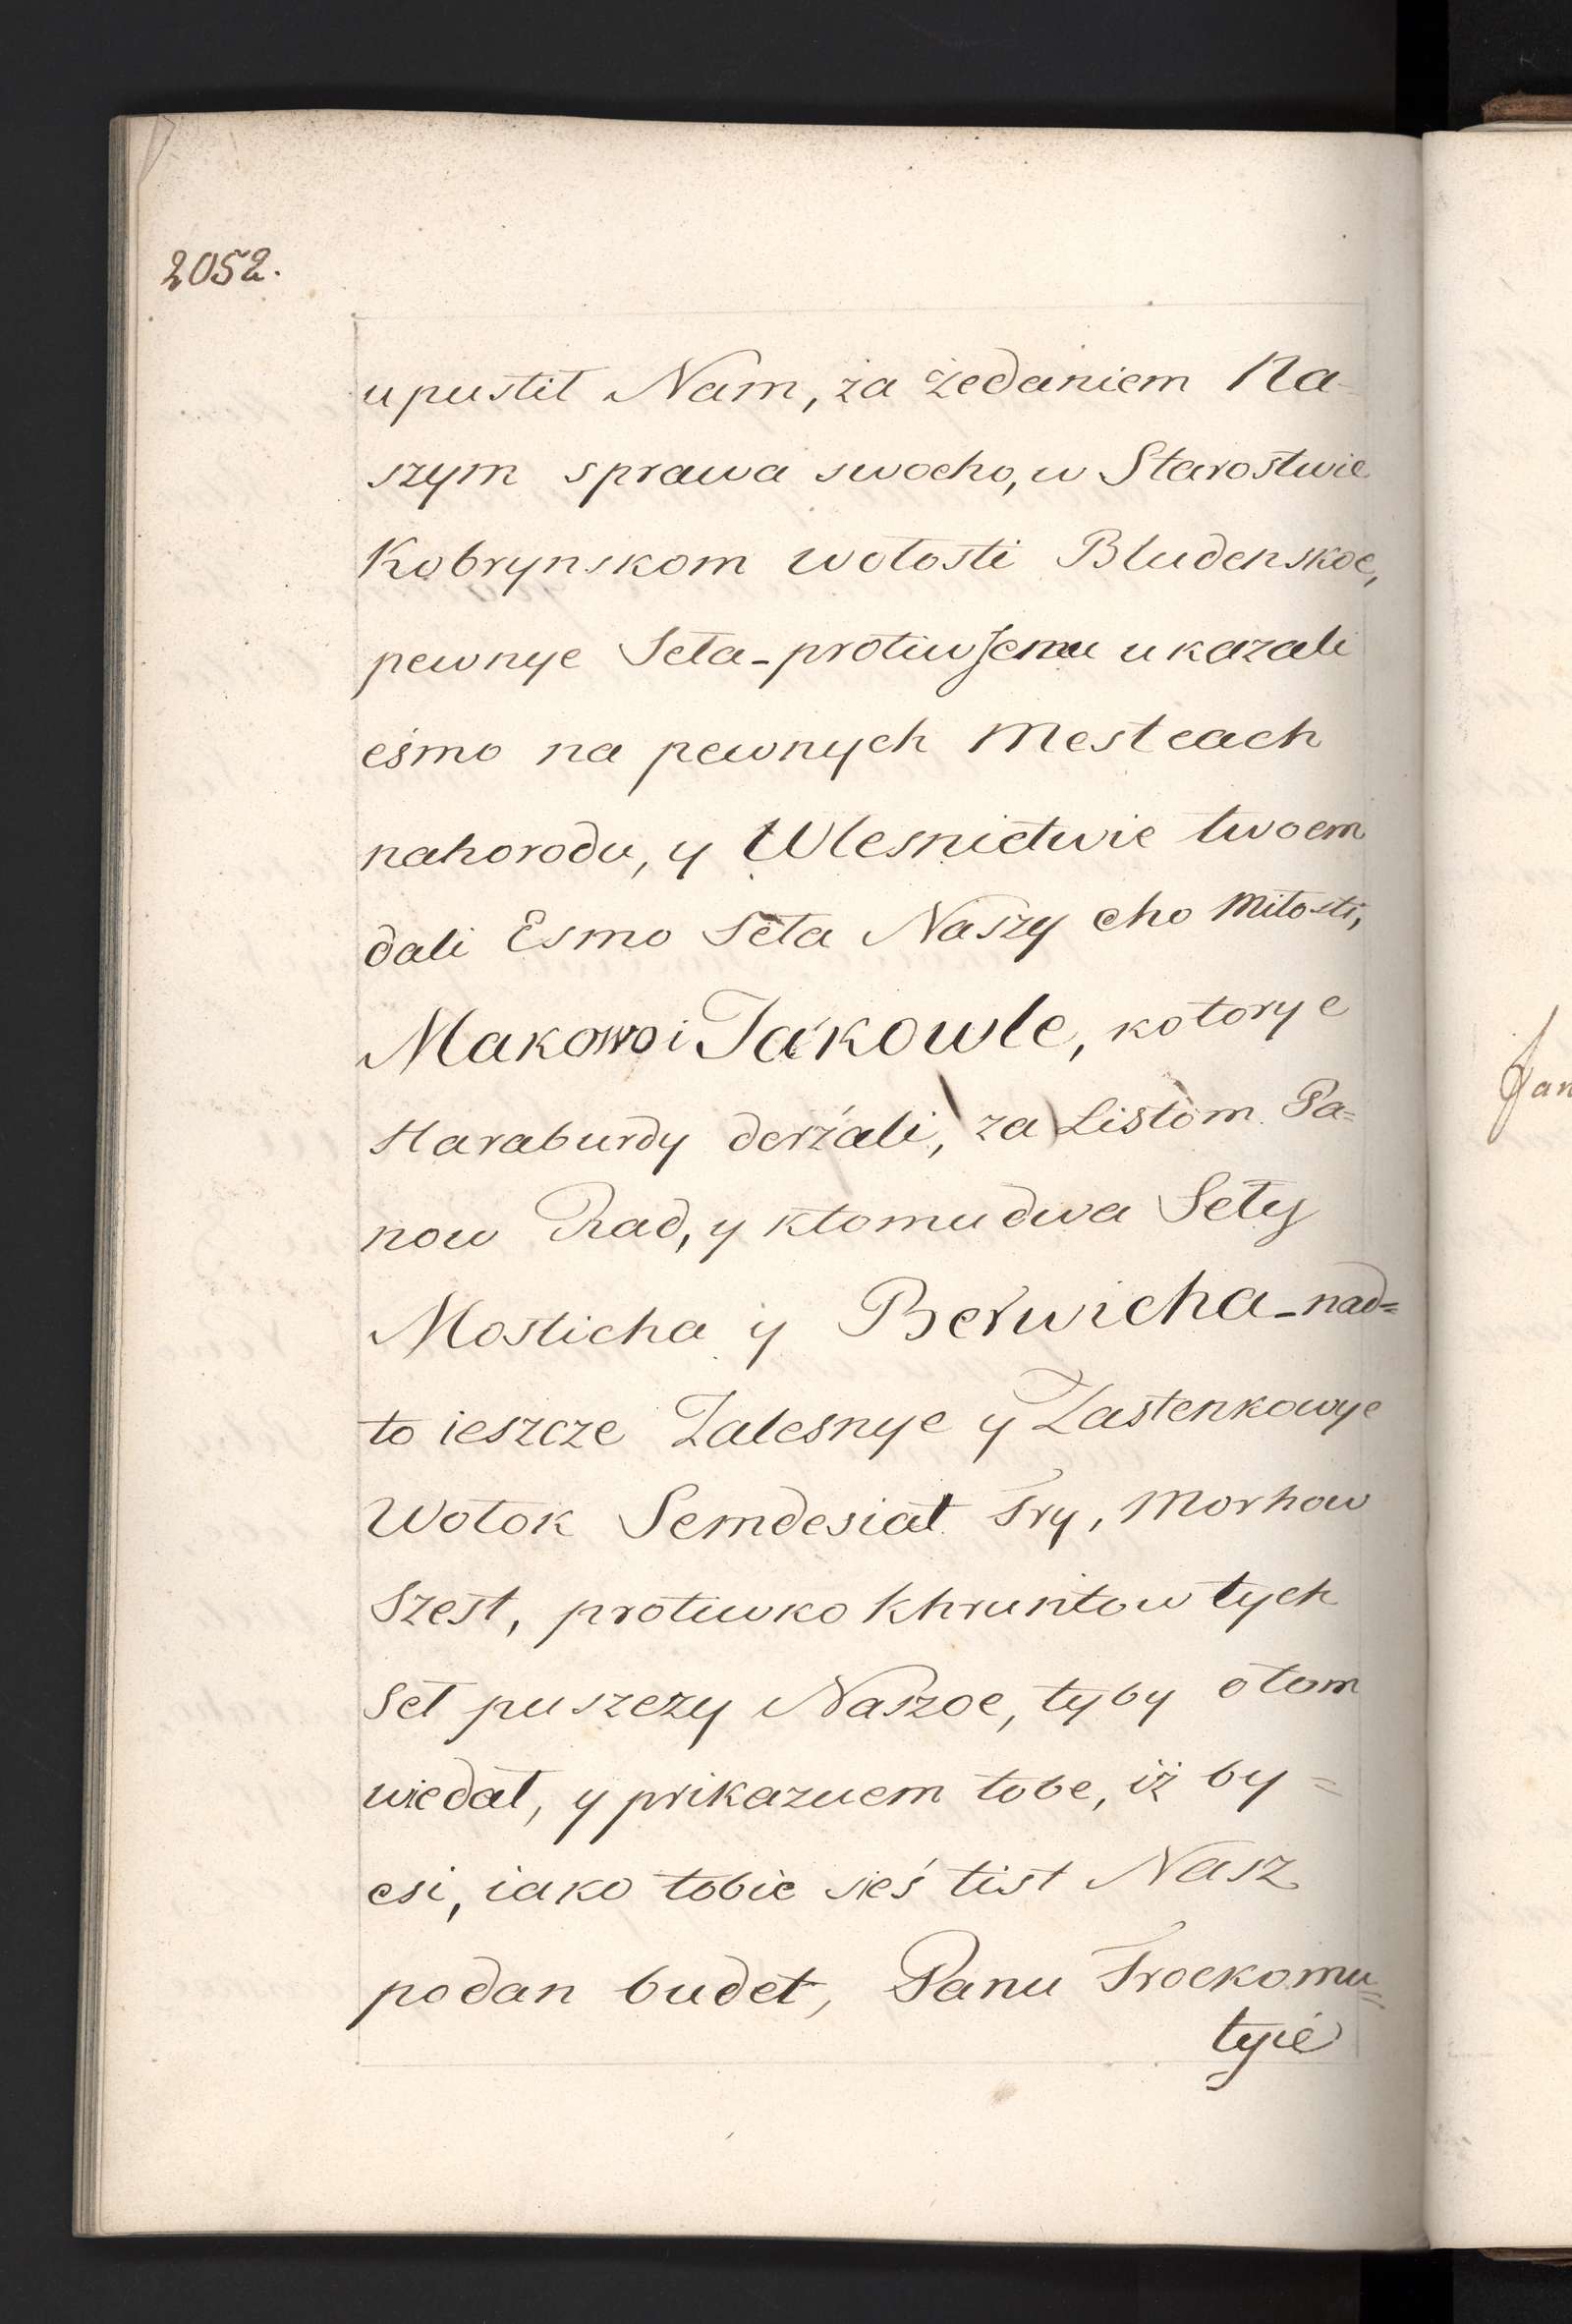 2052.
upustił Nam, za żedaniem Na-
szym sprawa swoeho, w Starostwie
Kobrynskom wołosti Bludenskoe,
pewnye Seła - protiw Jemu ukazali
eśmo na pewnych Mestcach
nahorodu, y Wlesnictwie twoem
dali Esmo Seła Naszy eho Miłosti,
Makowo i Jakowle, kotorye
Haraburdy derżali, za Listom Pa=
now Rad, y ktomu dwa Seły
Mosticha y Berwicha - nad=
to ieszcze Zalesnye y Zastenkowye
Wołok Semdesiat Try, Morhow
Szest, protiwko Khruntow tych
Seł puszczy Naszoe, tyby otom
wiedał, y prikazuem tobe, iż by=
esi, iako tobie sieś list Nasz
podan budet, Panu Trockomu=
tyie
Jan